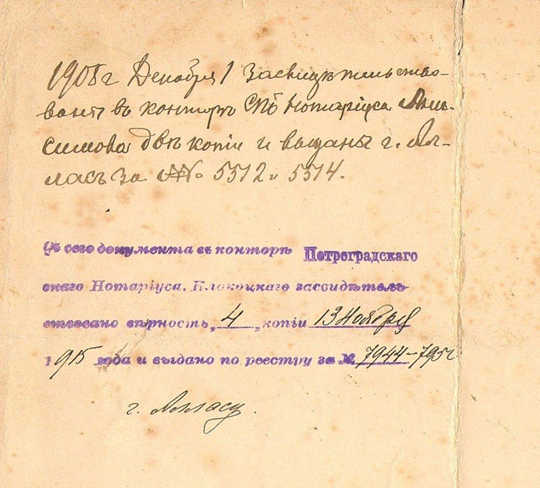 1908 г Декабря 1 Засвидѣтельство-
ваны въ конторѣ СПб Нотаріуса
симова двѣ копіи и выданы г.
ласъ за №№ 5512 и 5514.
Съ сего документа въ конторѣ Петроградскаго
скаго Нотаріуса. Клокоцкаго засвидѣтель
ствовано вѣрность, 4 , копіи 13 Ноября
1915 года и выдано по реестру за № 7944-7952
г.